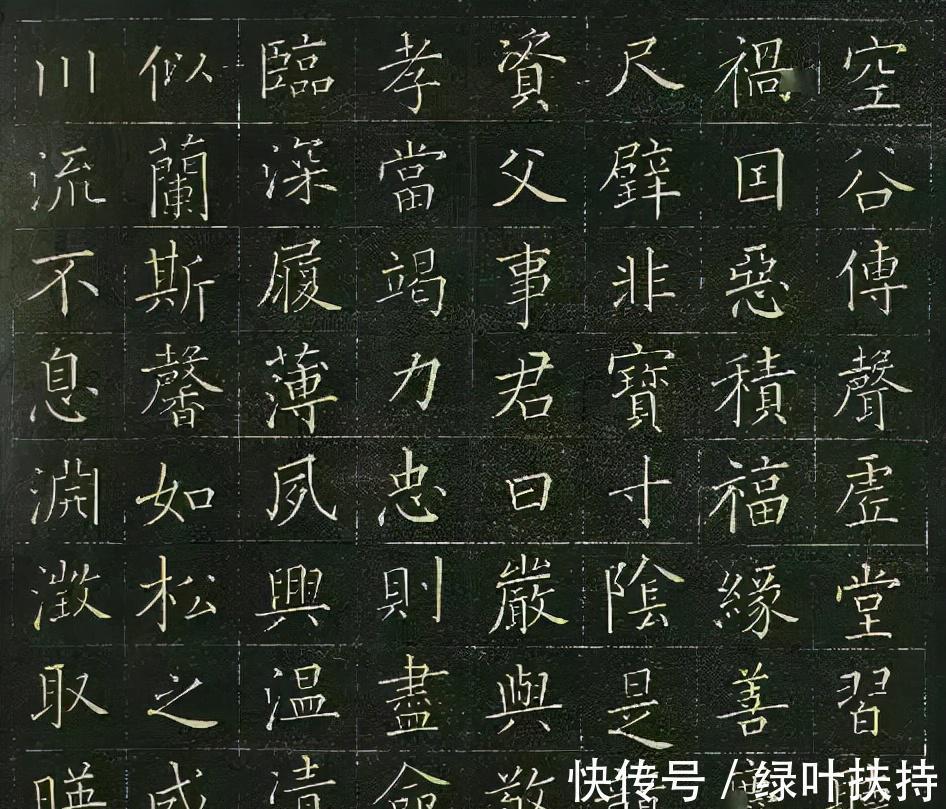 空谷傳聲虛堂習
禍因惡積福緣善
尺璧非寶寸陰是
資父事君曰嚴與敬
孝當竭力忠則盡命
臨深履薄夙興温清
似蘭斯馨如松之盛
川流不息淵澂取暎
快传号/绿叶扶持